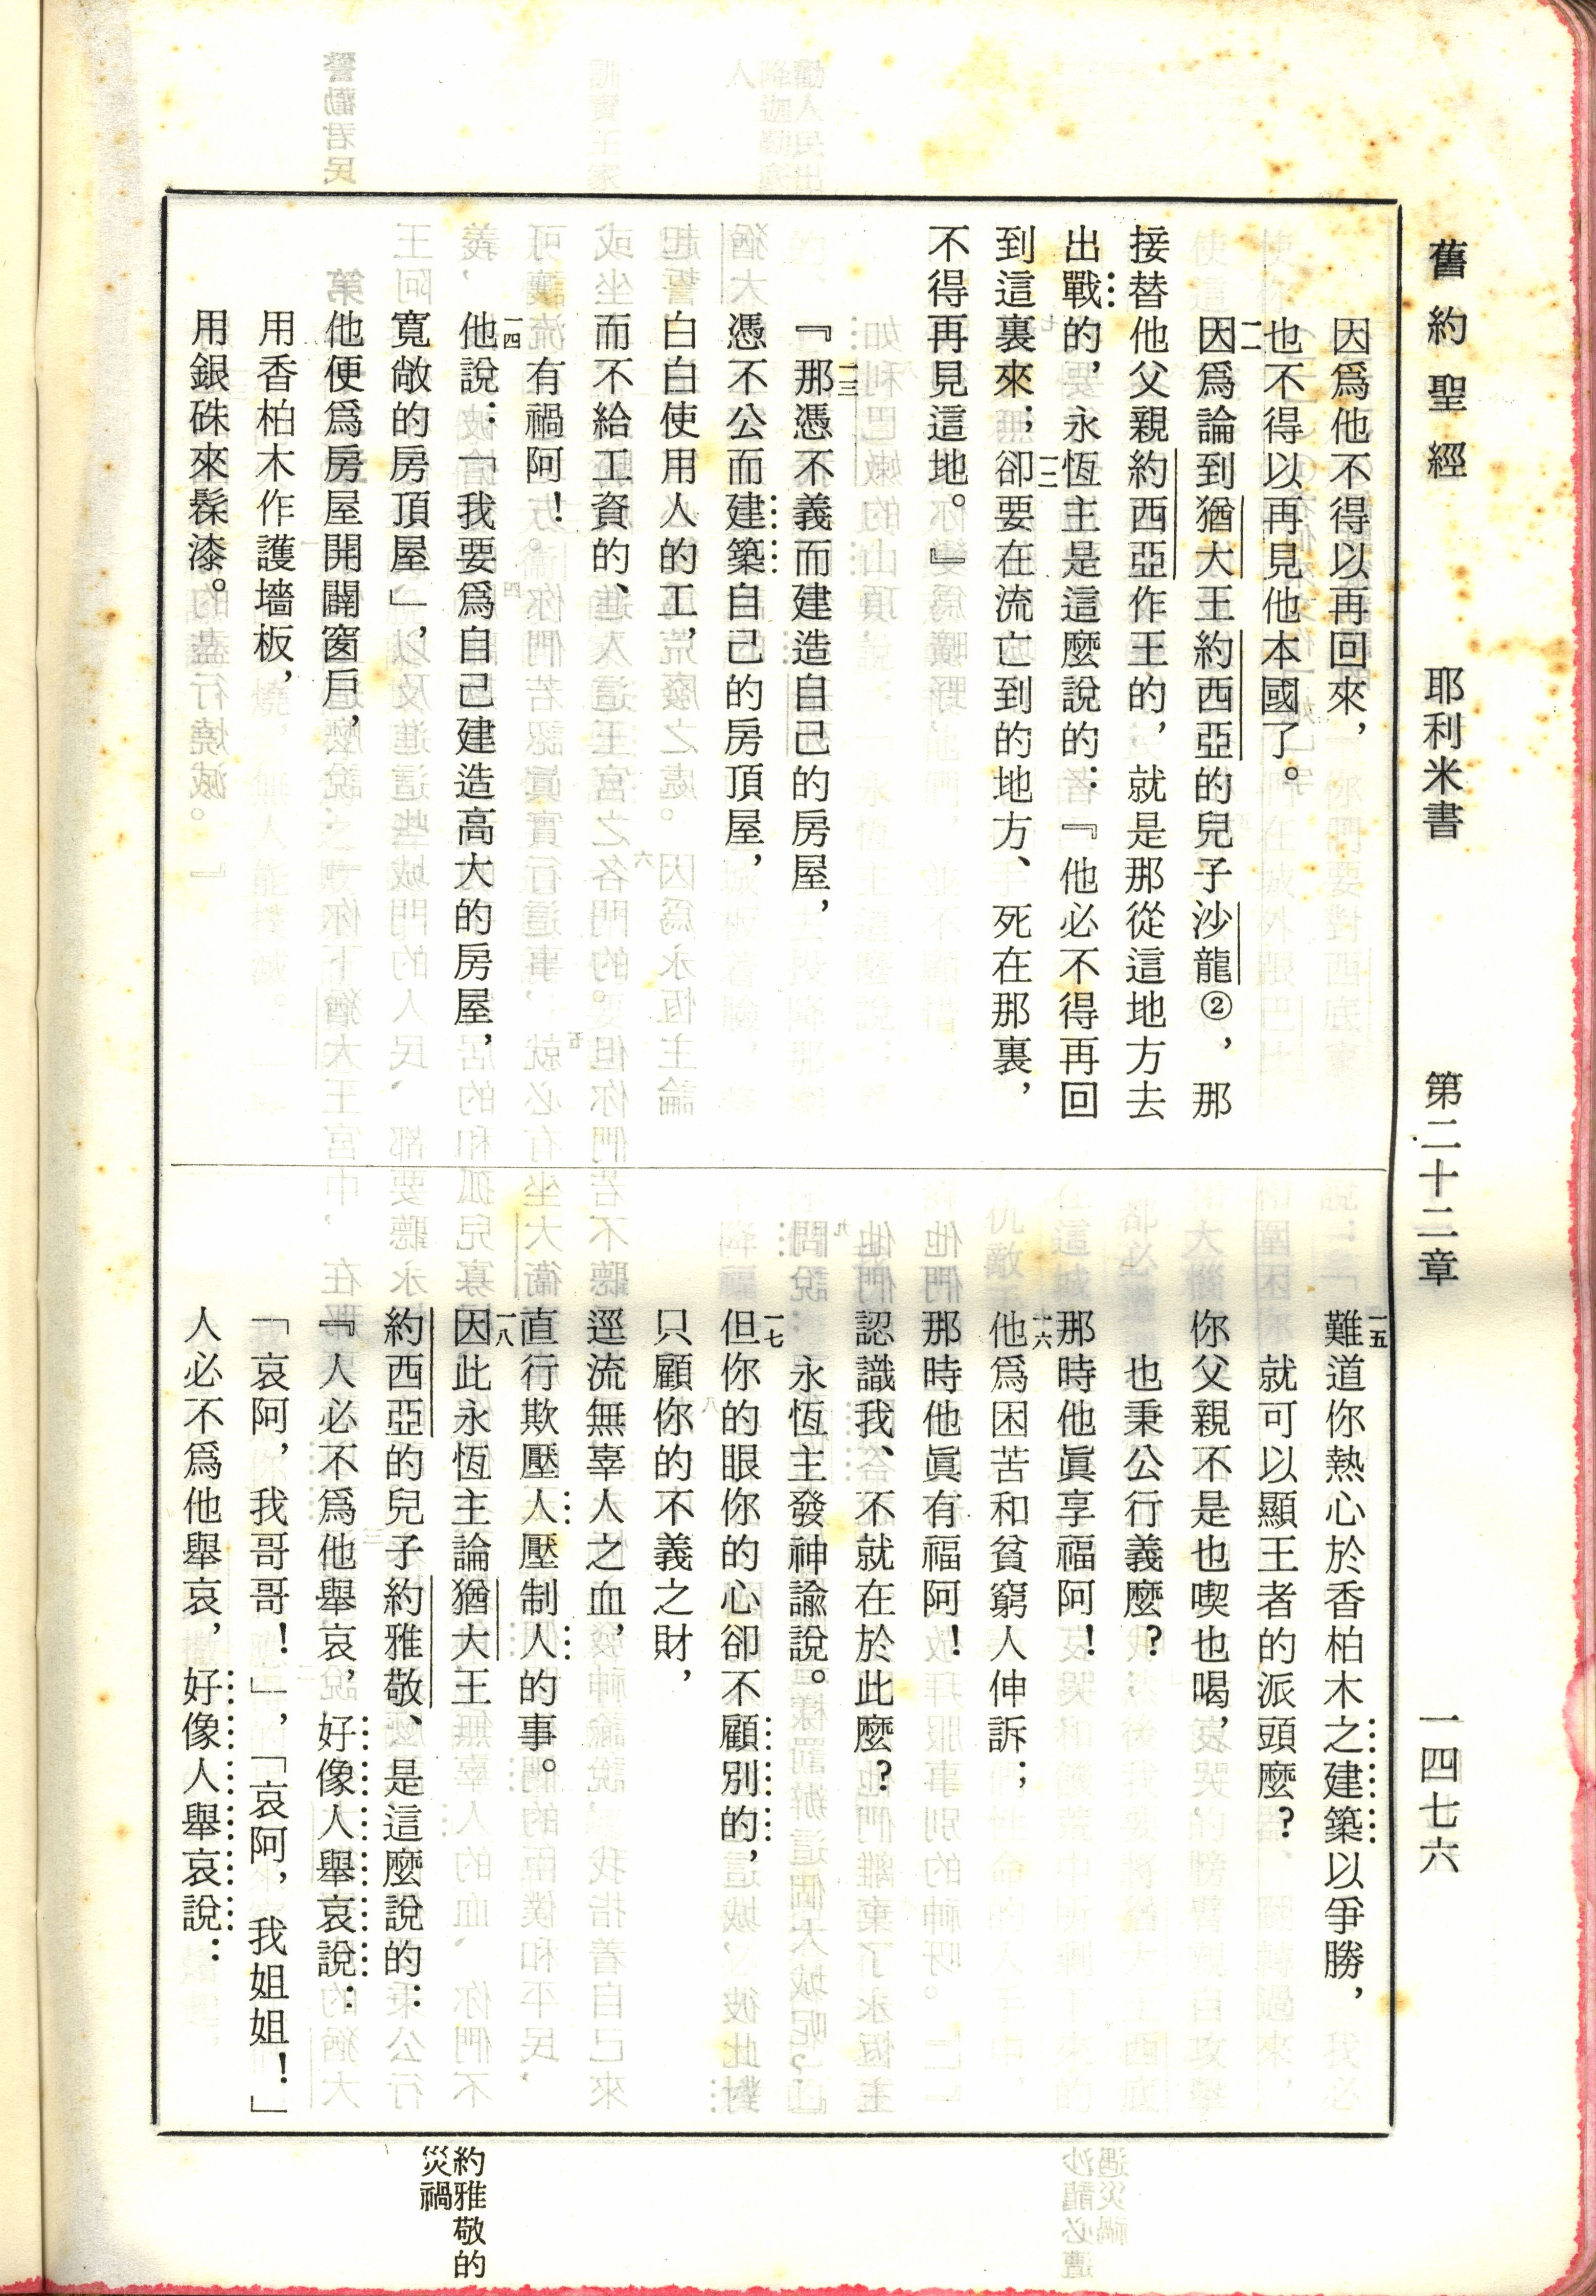 舊約聖經　耶利米書　第二十二章　一四七六
因爲他不得以再回來，
也不得以再見他本國了。
一一因爲論到猶大王約西亞的兒子沙龍②，那
接替他父親約西亞作王的，就是那從這地方去
出戰的，永恆主是這麼說的：『他必不得再回
到這裏來；一二卻要在流亡到的地方、死在那裏，
不得再見這地。』
一三『那憑不義而建造自己的房屋，
憑不公而建築自己的房頂屋，
白白使用人的工，
而不給工資的、
有禍阿！
一四他說：「我要爲自己建造高大的房屋，
寬敞的房頂屋」，
他便爲房屋開闢窗戶，
用香柏木作護墻板，
用銀硃來髹漆。
一五難道你熱心於香柏木之建築以爭勝，
就可以顯王者的派頭麼？
你父親不是也喫也喝，
也秉公行義麼？
那時他眞享福阿！
十六他爲困苦和貧窮人伸訴；
那時他眞有福阿！
認識我、不就在於此麼？
永恆主發神諭說。
一七但你的眼你的心卻不顧別的，
只顧你的不義之財，
逕流無辜人之血，
直行欺壓人壓制人的事。
一八因此永恆主論猶大王
約西亞的兒子約雅敬、是這麼說的：
『人必不爲他舉哀，好像人舉哀說：
「哀阿，我哥哥！」，「哀阿，我姐姐！」
人必不爲他舉哀，好像人舉哀說：
約雅敬的
災禍